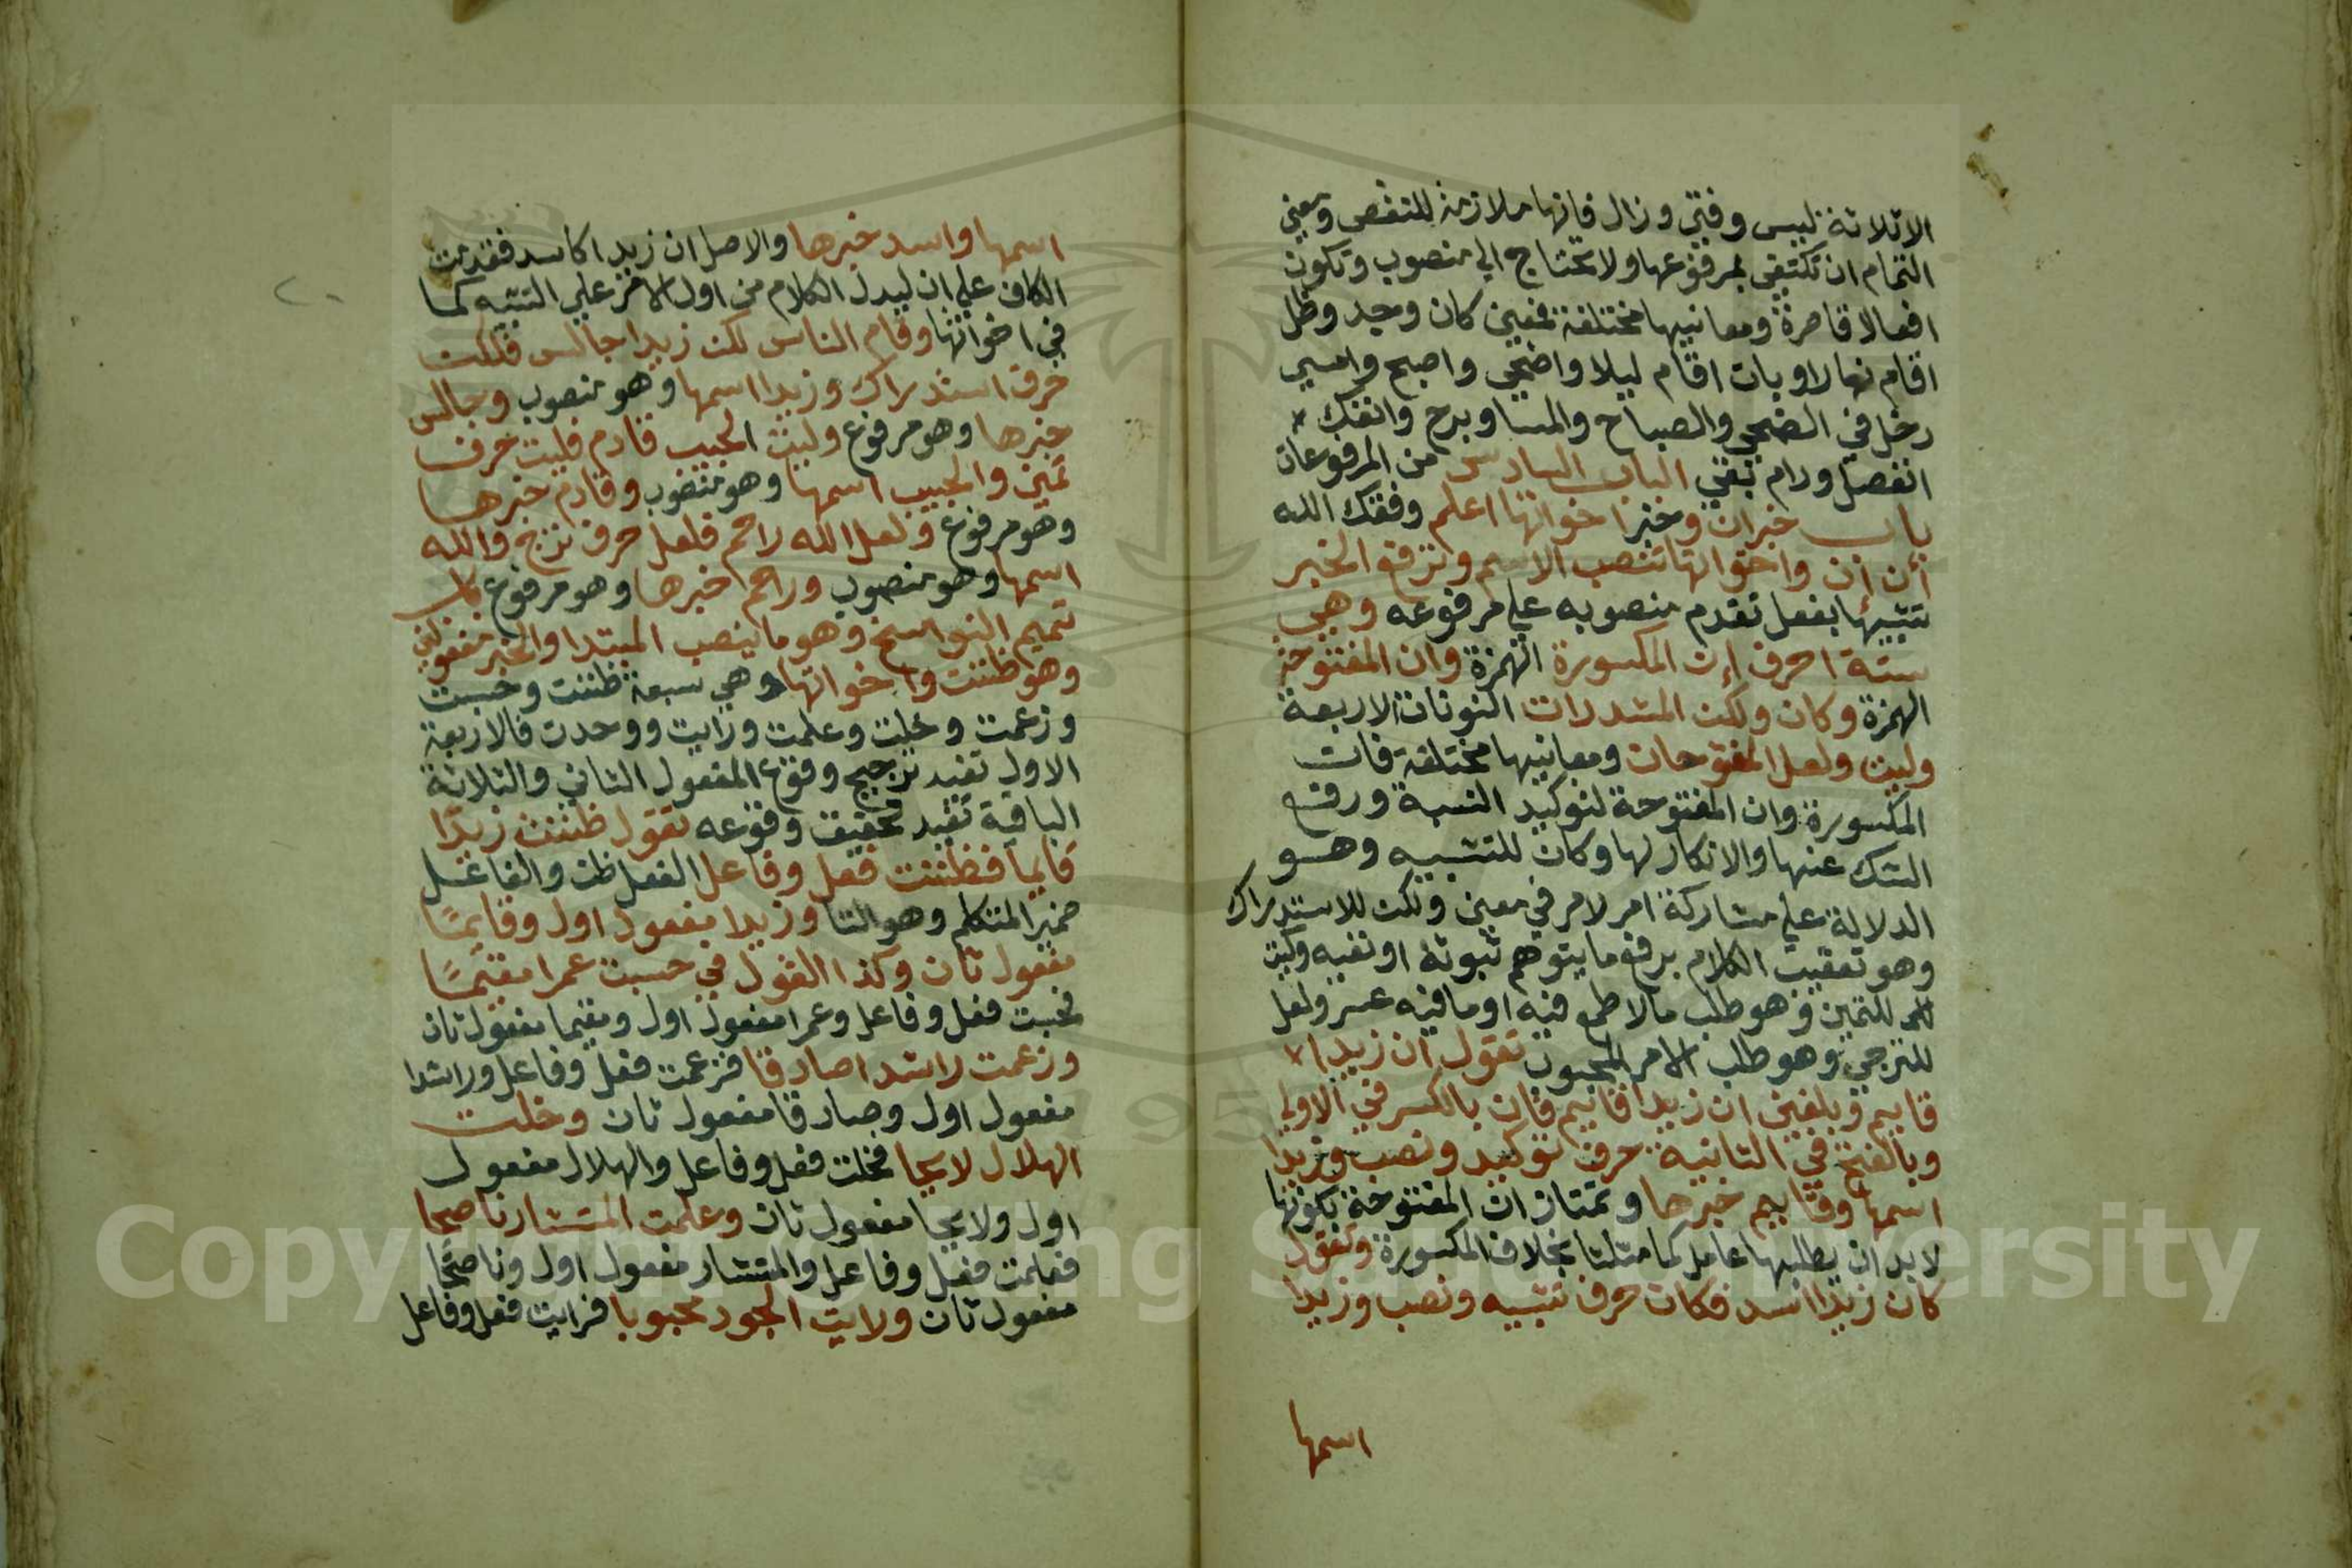 الاثلاثة ليس وفتئ وزال فانها ملازمة للنقص ومعني
التمام ان تكتفي بمرفوعها ولا تحتاج الي منصوب وتكون
افعالا قاصرة ومعانيها مختلفة فمعني كان وجد وظل
اقام نهارا وبات اقام ليلا واضحي واصبح وامسي
دخل في الضحي والصباح والمسا وبرح وانفك
انفصل ودام بقي الباب السادس من المرفوعات
باب خبر ان وخبر اخواتها اعلم وفقك الله
أن ان واخواتها تنصب الاسم وترفع الخبر
تشبيها بفعل تقدم منصوبه علي مرفوعه وهي
ستة احرف إن المكسورة الهمزة وان المفتوحة
الهمزة وكان ولكن المشددات النونات الاربعة
وليت ولعل المفتوحات ومعانيها مختلفة فان
المكسورة وان المفتوحة لتوكيد النسبة ورفع
الشك عنها والانكار لها وكان للتشبيه وهو
الدلالة علي مشاركة امر لامر في معني ولكن للاستدراك
وهو تعقيب الكلام برفع ما يتوهم ثبوته او نفيه وليت
للتمني وهو طلب ما لا طمع فيه او ما فيه عسر ولعل
للترجي وهو طلب الامر المحبوب تقول ان زيدا
قايم وبلغني ان زيدا قايم فان بالكسر في الاولي
وبالفتح في الثانية حرف توكيد ونصب وزيدا
اسمها وقايم خبرها وتمتاز ان المفتوحة بكونها
لا بد ان يطلبها عامل كما مثلنا بخلاف المكسورة وتقول
كان زيدا اسد فكان حرف تشبيه ونصب وزيدا
اسمها
اسمها واسد خبرها والاصل ان زيدا كاسد فقدمت
الكاف علي ان ليدل الكلام من اول الامر علي التشبه كما
في اخواتها وقام الناس لكن زيدا جالس فلكن
حرف استدراك وزيدا اسمها وهو منصوب وجالس
خبرها وهو مرفوع وليت الحبيب قادم فليت حرف
تمني والحبيب اسمها وهو منصوب وقادم خبرها
وهو مرفوع ولعل الله راحم فلعل حرف ترج والله
اسمها وهو منصوب وراحم خبرها وهو مرفوع باب
تتميم النواسخ وهو ما ينصب المبتدا والخبر مفعولين
وهو ظننت واخواتها وهي سبعة ظننت وحسبت
وزعمت وخلت وعلمت ورايت ووجدت فالاربعة
الاول تفيد ترجيح وقوع المفعول الثاني والثلاثة
الباقية تفيد تحقيق وقوعه تقول ظننت زيدا
قايما فظننت فعل وفاعل الفعل ظن والفاعل
ضمير المتكلم وهو التا وزيدا مفعول اول وقايمًا
مفعول ثان وكذا القول في حسبت عمرا مقيمًا
فحسبت فعل وفاعل وعمرا مفعول اول ومقيما مفعول ثان
وزعمت راشدا صادقا فزعمت فعل وفاعل وراشدا
مفعول اول وصادقا مفعول ثان وخلت
الهلال لايحا فخلت فعل وفاعل والهلال مفعول
اول ولايحا مفعول ثان وعلمت المستشار ناصحا
فعلمت فعل وفاعل والمستشار مفعول اول وناصحًا
مفعول ثان ورايت الجود محبوبا فرايت فعل وفاعل
Copyright © King Saud University
195